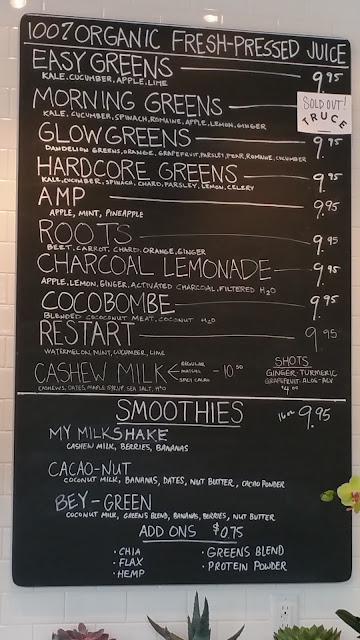 100% ORGANIC FRESH-PRESSED JUICE
EASY GREENS 9.95
KALE, CUCUMBER, APPLE, LIME
MORNING GREENS
KALE, CUCUMBER, SPINACH, ROMAINE, APPLE, LEMON, GINGER
SOLD OUT!
TRUCE
GLOW GREENS 9.95
DANDELION GREENS, ORANGE, GRAPEFRUIT, PARSLEY, PEAR, ROMAINE, CUCUMBER
HARDCORE GREENS 9.95
KALE, CUCUMBER, SPINACH, CHARD, PARSLEY, LEMON, CELERY
AMP 9.95
APPLE, MINT, PINEAPPLE
ROOTS 9.95
BEET, CARROT, CHARD, ORANGE, GINGER
CHARCOAL LEMONADE 9.95
APPLE, LEMON, GINGER, ACTIVATED CHARCOAL, FILTERED H2O
COCOBOMBE 9.95
BLENDED COCOCNUT MEAT, COCONUT H2O
RESTART 9.95
WATERMELON, MINT, CUCUMBER, LIME
CASHEW MILK REGULAR - 10.50
MATCHA
SPICY CACAO
CASHEWS, DATES, MAPLE SYRUP, SEA SALT, H2O
SHOTS
GINGER-TURMERIC
GRAPEFRUIT-ALOE-ACV
$4.00
SMOOTHIES 16oz 9.95
MY MILKSHAKE
CASHEW MILK, BERRIES, BANANAS
CACAO-NUT
COCONUT MILK, BANANAS, DATES, NUT BUTTER, CACAO POWDER
BEY-GREEN
COCONUT MILK, GREENS BLEND, BANANAS, BERRIES, NUT BUTTER
ADD ONS $0.75
• CHIA
• FLAX
• HEMP
• GREENS BLEND
• PROTEIN POWDER